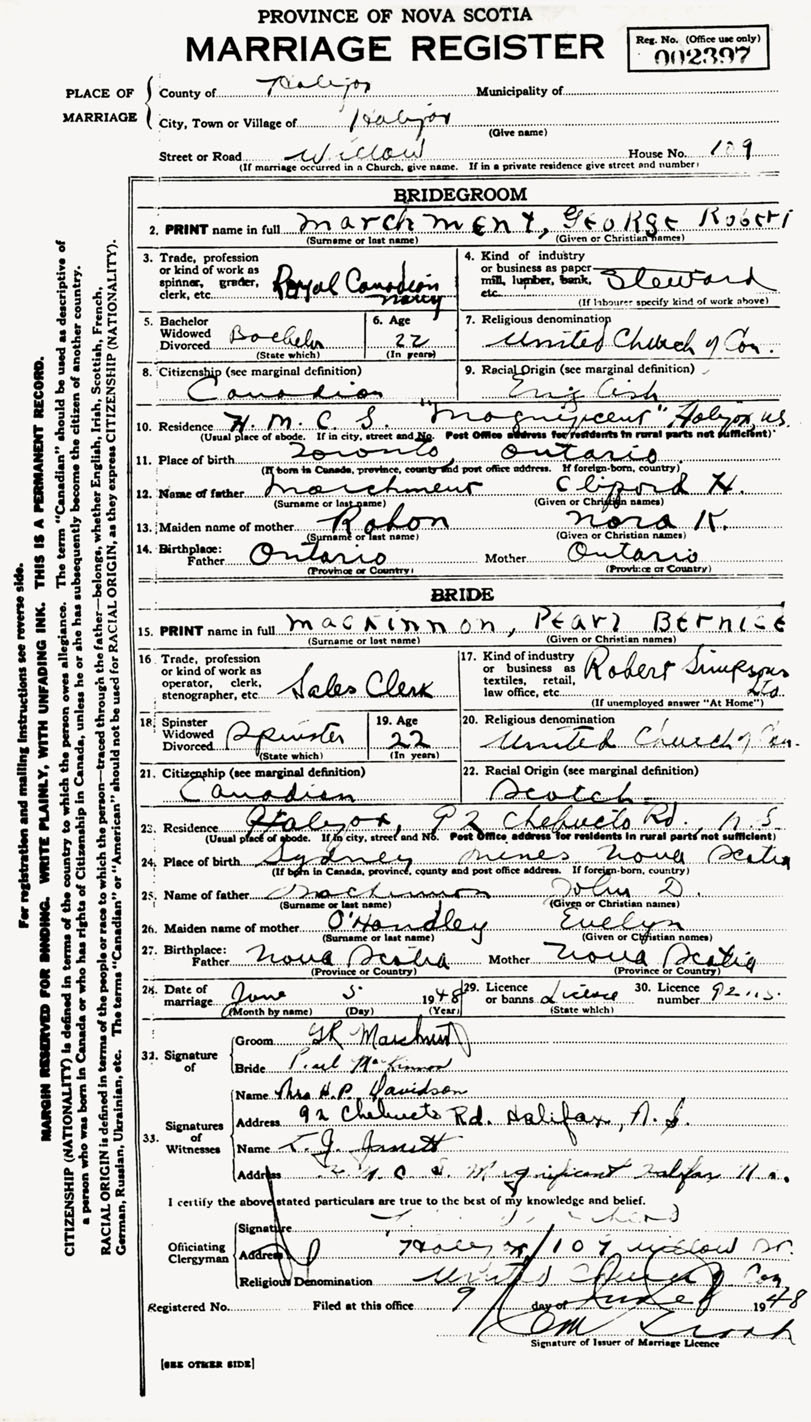 PROVINCE OF NOVA SCOTIA
MARRIAGE REGISTER
Reg. No. (Office use only)
002397
PLACE OF MARRIAGE
County of Halifax Municipality of
City, Town or Village of Halifax
(Give name)
Street or Road Willow House No. 109
(If marriage occurred in a Church, give name. If in a private residence give street and number)
BRIDEGROOM
2. PRINT name in full Marchment, George Robert
(Surname or last name) (Given or Christian names)
3. Trade, profession or kind of work as spinner, grader, clerk, etc. Royal Canadian Navy
4. Kind of industry or business as paper mill, lumber, bank, etc. Steward
(If labourer specify kind of work above)
5. Bachelor Widowed Divorced Bachelor
(State which)
6. Age 22
(In years)
7. Religious denomination United Church of Can.
8. Citizenship (see marginal definition) Canadian
9. Racial Origin (see marginal definition) English
10. Residence H.M.C.S. "Magnificent" Halifax, N.S.
(Usual place of abode. If in city, street and No. Post Office address for residents in rural parts not sufficient)
11. Place of birth Toronto, Ontario
(If born in Canada, province, county and post office address. If foreign-born, country)
12. Name of father Marchment Clifford H.
(Surname or last name) (Given or Christian names)
13. Maiden name of mother Nora K.
(Surname or last name) (Given or Christian names)
14. Birthplace: Father Ontario Mother Ontario
(Province or Country) (Province or Country)
BRIDE
15. PRINT name in full MacKinnon, Pearl Bernice
(Surname or last name) (Given or Christian names)
16. Trade, profession or kind of work as operator, clerk, stenographer, etc. Sales Clerk
17. Kind of industry or business as textiles, retail, law office, etc. Robert Simpsons Ltd.
(If unemployed answer "At Home")
18. Spinster Widowed Divorced Spinster
(State which)
19. Age 22
(In years)
20. Religious denomination United Church of Can.
21. Citizenship (see marginal definition) Canadian
22. Racial Origin (see marginal definition) Scotch
23. Residence Halifax, 92 Chebucto Rd., N.S
(Usual place of abode. If in city, street and No. Post Office address for residents in rural parts not sufficient)
24. Place of birth Sydney Mines Nova Scotia
(If born in Canada, province, county and post office address. If foreign-born, country)
25. Name of father MacKinnon John D.
(Surname or last name) (Given or Christian names)
26. Maiden name of mother O'Handley Evelyn
(Surname or last name) (Given or Christian names)
27. Birthplace: Father Nova Scotia Mother Nova Scotia
(Province or Country) (Province or Country)
28. Date of marriage June 5 1948
(Month by name) (Day) (Year)
29. Licence or banns License
(State which)
30. Licence number
32. Signature of
Groom GR Marchment
Bride Pearl MacKinnon
33. Signatures of Witnesses
Name Mrs H.P. Davidson
Address 92 Chebucto Rd. Halifax, N.S.
Name
Address H.M.C.S. Magnificent Halifax N.S.
I certify the above stated particulars are true to the best of my knowledge and belief.
Officiating Clergyman
Signature
Address Halifax Willow St.
Religious Denomination United Church of Can
Registered No. Filed at this office 9 day of June 1948
Signature of Issuer of Marriage Licence
[SEE OTHER SIDE]
For registration and mailing instructions see reverse side.
MARGIN RESERVED FOR BINDING. WRITE PLAINLY, WITH UNFADING INK. THIS IS A PERMANENT RECORD.
CITIZENSHIP (NATIONALITY) is defined in terms of the country to which the person owes allegiance. The term "Canadian" should be used as descriptive of
a person who was born in Canada or who has rights of Citizenship in Canada, unless he or she has subsequently become the citizen of another country.
RACIAL ORIGIN is defined in terms of the people or race to which the person—traced through the father—belongs, whether English, Irish, Scottish, French,
German, Russian, Ukrainian, etc. The terms "Canadian" or "American" should not be used for RACIAL ORIGIN, as they express CITIZENSHIP (NATIONALITY).